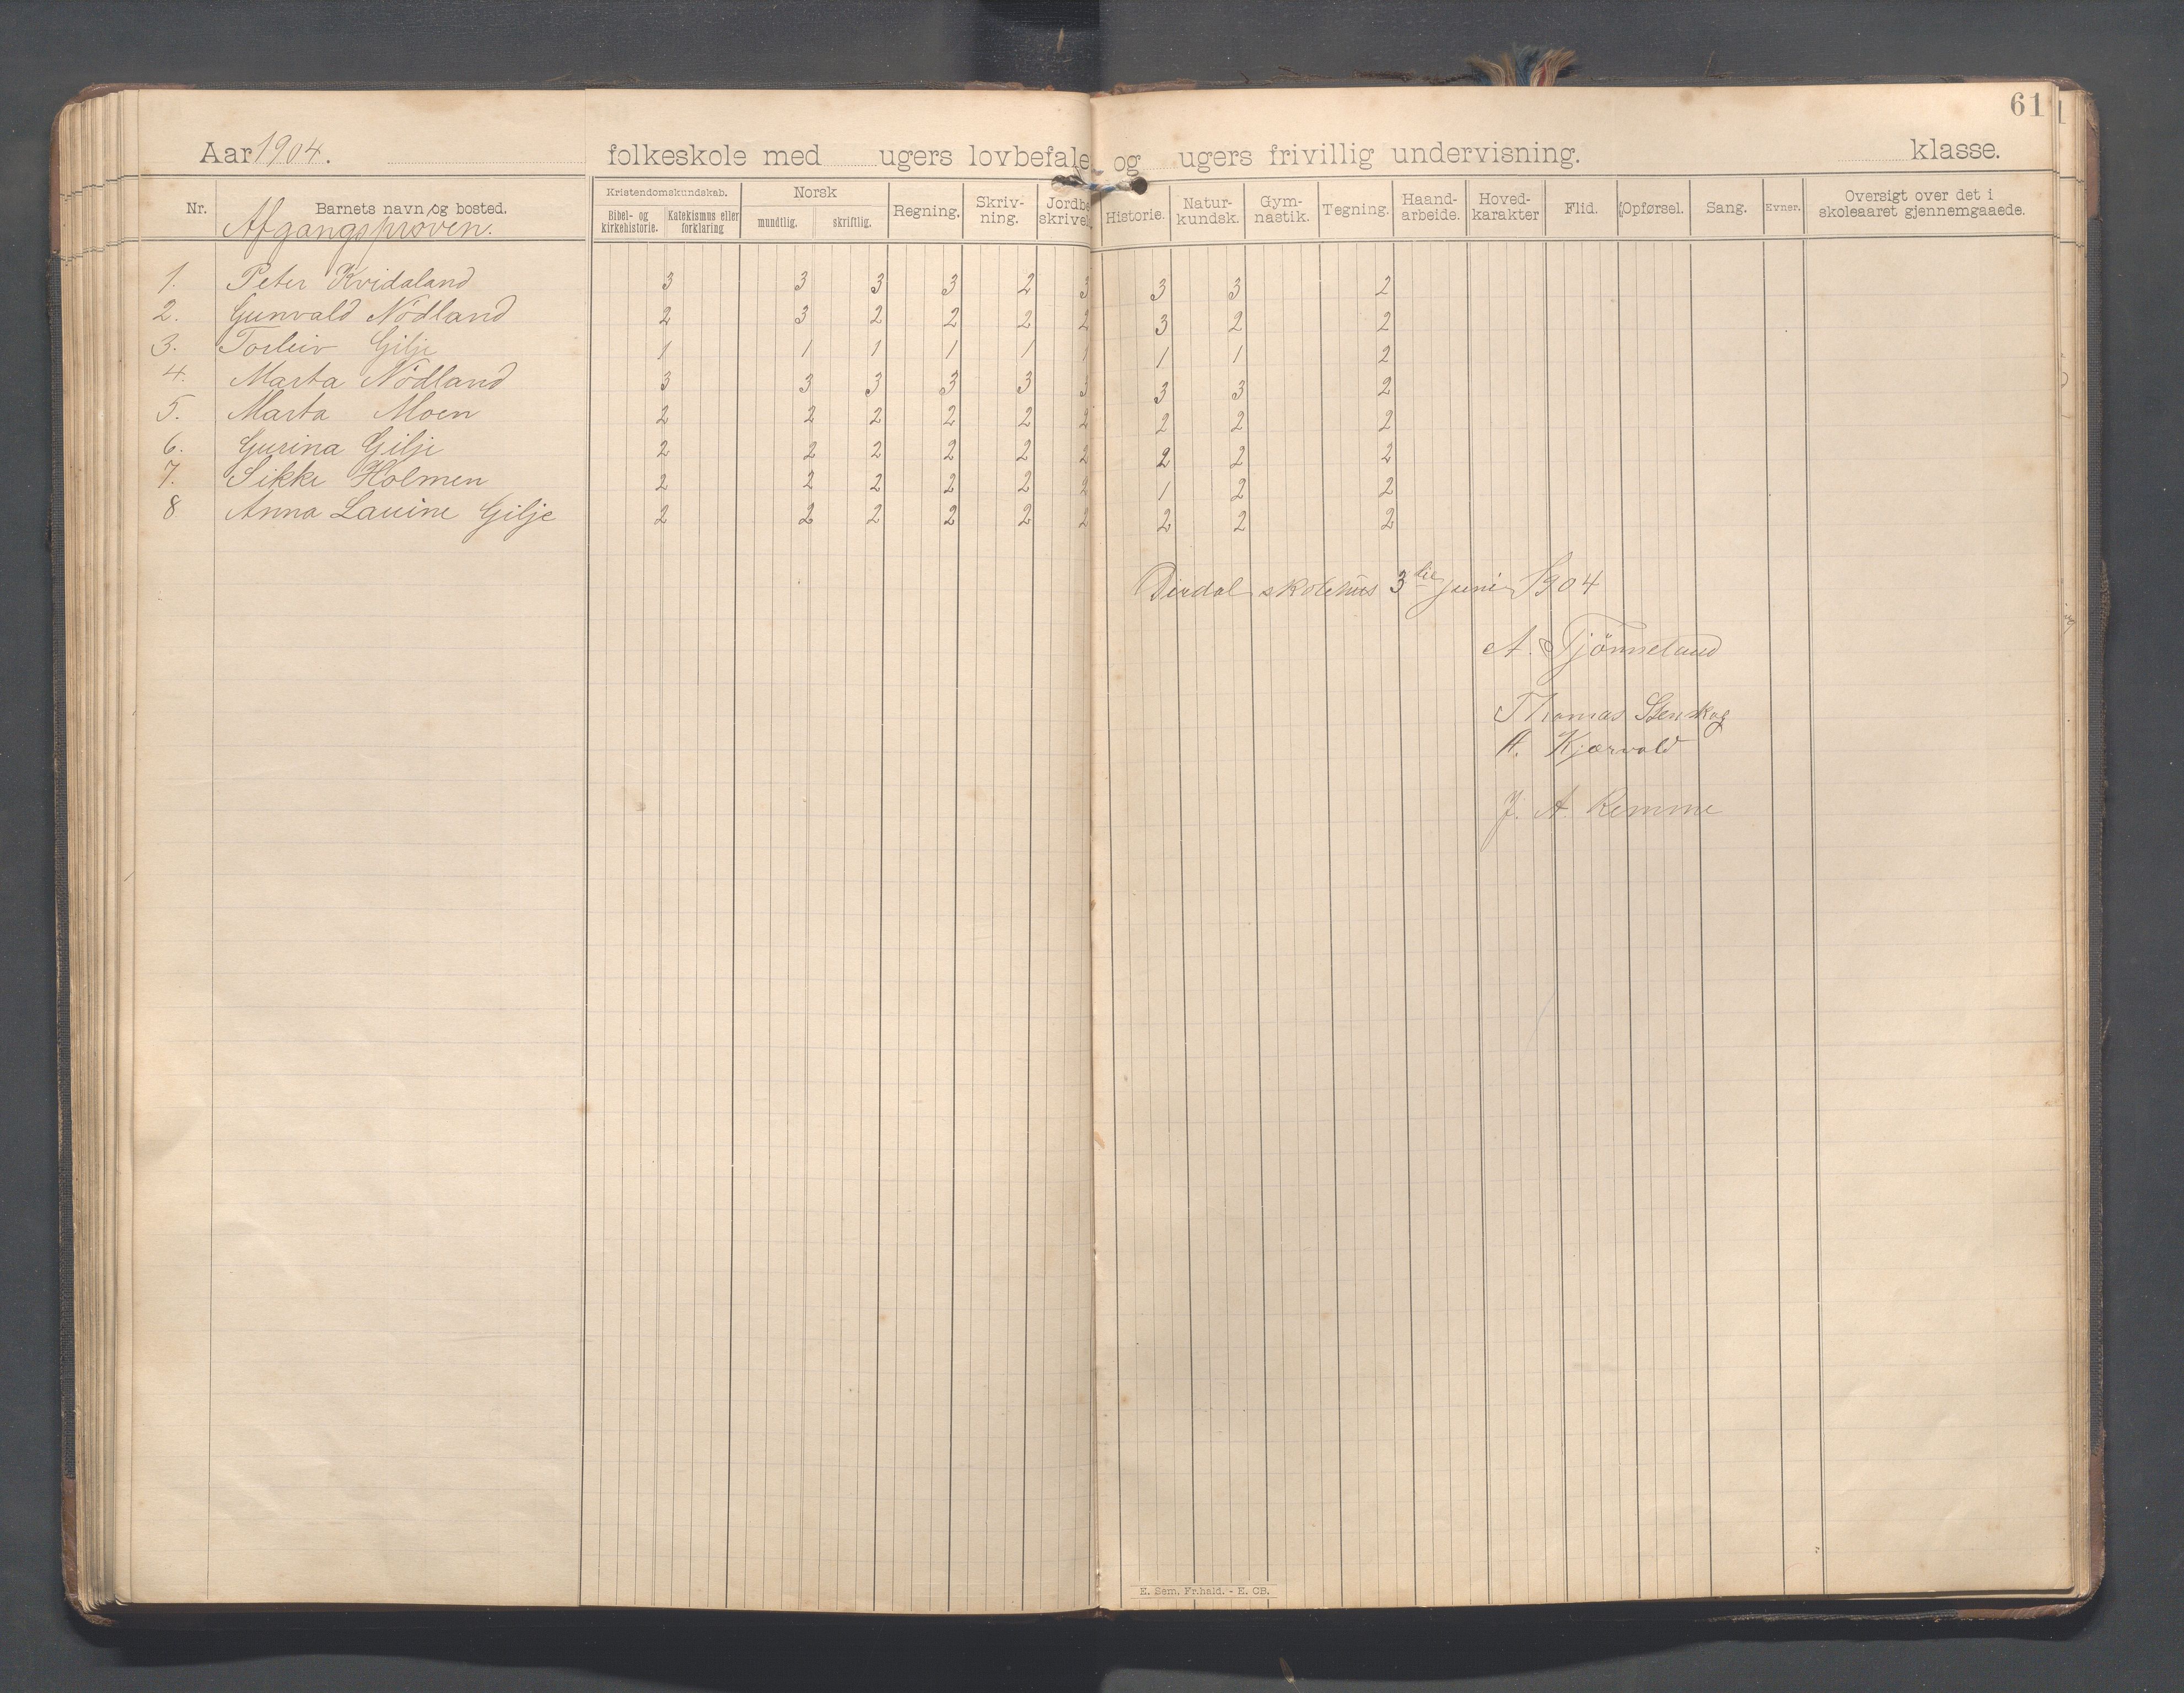 61
Aar 1904. folkeskole med ugers lovbefale og ugers frivillig undervisning. klasse.
Nr. Barnets navn og bosted. Kristendomskundskab. Bibel- og kirkehistorie. Katekismus eller forklaring Norsk mundtlig. skriftlig. Regning. Skriv-ning. Jordbe skrivel Historie. Natur-kundsk. Gym-nastik. Tegning. Haand-arbeide. Hoved-karakter Flid. Opførsel. Sang. Evner. Oversigt over det i skoleaaret gjennemgaaede.
Afgangsprøven.
1. Peter Kvidaland 3 3 3 3 2 3 3 3 2
2. Gunvald Nödland 2 3 2 2 2 2 3 2 2
3. Torleiv Gilje 1 1 1 1 1 1 1 1 2
4. Marta Nödland 3 3 3 3 3 3 3 3 2
5. Marta Moen 2 2 2 2 2 2 2 2 2
6. Gurina Gilje 2 2 2 2 2 2 2 2 2
7. Sikke Holmen 2 2 2 2 2 2 1 2 2
8 Anna Lauine Gilje 2 2 2 2 2 2 2 2 2
Dirdal skolehus 3die juni 1904
A. Tjönneland
Thomas
A. Kjærvold
J. A. Remme
E. Sem, Fr.hald. - E. CB.